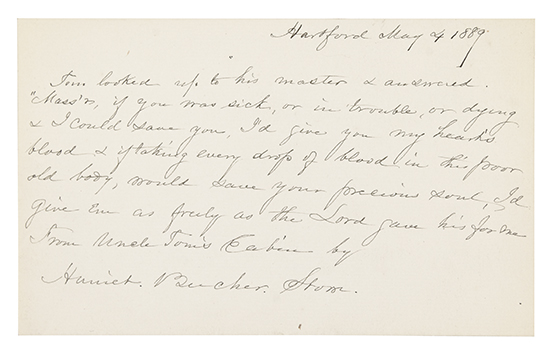 Hartford May 4 1889
Tom looked up to his master & answered.
"Mass'r, if you was sick, or in trouble, or dying
& I could save you, I'd give you my heart's
blood & if taking every drop of blood in this poor
old body, would save your precious soul, I'd
give 'em as freely as the Lord gave his for me
From Uncle Tom's Cabin by
Harriet Beecher Stowe.